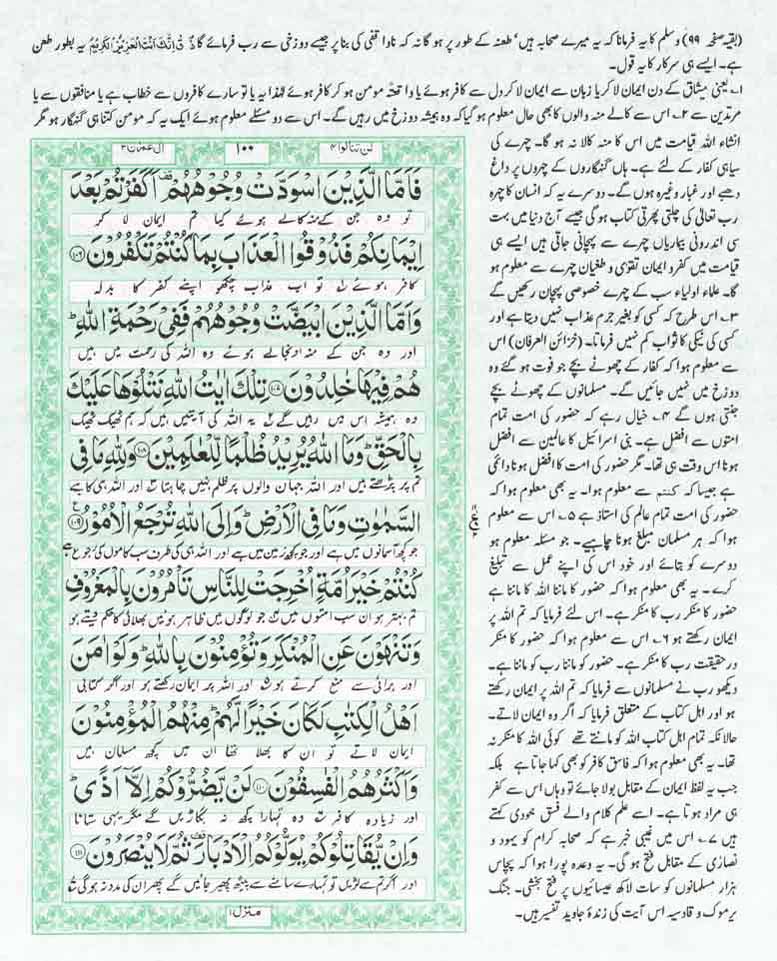 (بقیہ صفحہ ۹۹) وسلم کا یہ فرمانا کہ یہ میرے صحابہ ہیں' طعنہ کے طور پر ہو گا نہ کہ ناواقفی کی بنا پر جیسے دوزخی سے رب فرمائے گا ذُقْ اِنَّكَ اَنْتَ الْعَزِيْزُ الْكَرِيْمُ یہ بطور طعن
ہے۔ ایسے ہی سرکار کا یہ قول۔
۱۔ یعنی میثاق کے دن ایمان لا کر یا زبان سے ایمان لا کر دل سے کافر ہوئے یا واقعۃً مومن ہو کر کافر ہوئے لہٰذا یہ یا تو سارے کافروں سے خطاب ہے یا منافقوں سے یا
مرتدین سے ۲۔ اس سے کالے منہ والوں کا بھی حال معلوم ہو گیا کہ وہ ہمیشہ دوزخ میں رہیں گے۔ اس سے دو مسئلے معلوم ہوئے ایک یہ کہ مومن کتنا ہی گنہگار ہو مگر
انشاء اللہ قیامت میں اس کا منہ کالا نہ ہو گا۔ چہرے کی
سیاہی کفار کے لئے ہے۔ ہاں گنہگاروں کے چہروں پر داغ
دھبے اور غبار وغیرہ ہوں گے۔ دوسرے یہ کہ انسان کا چہرہ
رب تعالیٰ کی چلتی پھرتی کتاب ہو گی جیسے آج دنیا میں بہت
سی اندرونی بیماریاں چہرے سے پہچانی جاتی ہیں ایسے ہی
قیامت میں کفر و ایمان تقویٰ و طغیان چہرے سے معلوم ہو
گا۔ علماء اولیاء سب کے چہرے خصوصی پہچان رکھیں گے
۳۔ اس طرح کہ کسی کو بغیر جرم عذاب نہیں دیتا ہے اور
کسی کی نیکی کا ثواب کم نہیں فرماتا۔ (خزائن العرفان) اس
سے معلوم ہوا کہ کفار کے چھوٹے بچے جو فوت ہو گئے وہ
دوزخ میں نہیں جائیں گے۔ مسلمانوں کے چھوٹے بچے
جنتی ہوں گے ۴۔ خیال رہے کہ حضور کی امت تمام
امتوں سے افضل ہے۔ بنی اسرائیل کا عالمین سے افضل
ہونا اس وقت ہی تھا۔ مگر حضور کی امت کا افضل ہونا دائمی
ہے جیسا کہ كنتم سے معلوم ہوا۔ یہ بھی معلوم ہوا کہ
حضور کی امت تمام عالم کی استاذ ہے ۵۔ اس سے معلوم
ہوا کہ ہر مسلمان مبلغ ہونا چاہیے۔ جو مسئلہ معلوم ہو
دوسرے کو بتائے اور خود اس کی اپنے عمل سے تبلیغ
کرے۔ یہ بھی معلوم ہوا کہ حضور کا ماننا اللہ کا ماننا ہے
حضور کا منکر رب کا منکر ہے۔ اس لئے فرمایا کہ تم اللہ پر
ایمان رکھتے ہو ۶۔ اس سے معلوم ہوا کہ حضور کا منکر
در حقیقت رب کا منکر ہے۔ حضور کو ماننا رب کو ماننا ہے۔
دیکھو رب نے مسلمانوں سے فرمایا کہ تم اللہ پر ایمان رکھتے
ہو اور اہل کتاب کے متعلق فرمایا کہ اگر وہ ایمان لاتے۔
حالانکہ تمام اہل کتاب اللہ کو مانتے تھے کوئی اللہ کا منکر نہ
تھا۔ یہ بھی معلوم ہوا کہ فاسق کافر کو بھی کہا جاتا ہے بلکہ
جب یہ لفظ ایمان کے مقابل بولا جائے تو وہاں اس سے کفر
ہی مراد ہوتا ہے۔ اسے علم کلام والے فسق جحودی کہتے
ہیں ۷۔ اس میں غیبی خبر ہے کہ صحابہ کرام کو یہود و
نصاریٰ کے مقابل فتح ہو گی۔ یہ وعدہ پورا ہوا کہ پچاس
ہزار مسلمانوں کو سات لاکھ عیسائیوں پر فتح بخشی۔ جنگ
یرموک و قادسیہ اس آیت کی زندۂ جاوید تفسیر ہیں۔
لن تنالوا ۴ ۱۰۰ ال عمران ۳
فَاَمَّا الَّذِيْنَ اسْوَدَّتْ وُجُوْهُهُمْ اَكَفَرْتُمْ بَعْدَ
تو وہ جن کے منہ کالے ہوئے کیا تم ایمان لا کر
اِيْمَانِكُمْ فَذُوْقُوا الْعَذَابَ بِمَا كُنْتُمْ تَكْفُرُوْنَ ۱۰۶
کافر ہوئے تو اب عذاب چکھو اپنے کفر کا بدلہ
وَاَمَّا الَّذِيْنَ ابْيَضَّتْ وُجُوْهُهُمْ فَفِيْ رَحْمَةِ اللّٰهِ
اور وہ جن کے منہ اونجالے ہوئے وہ اللہ کی رحمت میں ہیں
هُمْ فِيْهَا خٰلِدُوْنَ ۱۰۷ تِلْكَ اٰيٰتُ اللّٰهِ نَتْلُوْهَا عَلَيْكَ
وہ ہمیشہ اس میں رہیں گے یہ اللہ کی آیتیں ہیں کہ ہم ٹھیک ٹھیک
بِالْحَقِّ وَمَا اللّٰهُ يُرِيْدُ ظُلْمًا لِّلْعٰلَمِيْنَ ۱۰۸ وَلِلّٰهِ مَا فِي
تم پر پڑھتے ہیں اور اللہ جہان والوں پر ظلم نہیں چاہتا اور اللہ ہی کا ہے
السَّمٰوٰتِ وَمَا فِي الْاَرْضِ وَاِلَى اللّٰهِ تُرْجَعُ الْاُمُوْرُ ۱۰۹
جو کچھ آسمانوں میں ہے اور جو کچھ زمین میں ہے اور اللہ ہی کی طرف سب کاموں کی رجوع ہے
كُنْتُمْ خَيْرَ اُمَّةٍ اُخْرِجَتْ لِلنَّاسِ تَاْمُرُوْنَ بِالْمَعْرُوْفِ
تم بہتر ہو ان سب امتوں میں جو لوگوں میں ظاہر ہوئیں بھلائی کا حکم دیتے ہو
وَتَنْهَوْنَ عَنِ الْمُنْكَرِ وَتُؤْمِنُوْنَ بِاللّٰهِ وَلَوْ اٰمَنَ
اور برائی سے منع کرتے ہو اور اللہ پر ایمان رکھتے ہو اور اگر کتابی
اَهْلُ الْكِتٰبِ لَكَانَ خَيْرًا لَّهُمْ مِنْهُمُ الْمُؤْمِنُوْنَ
ایمان لاتے تو ان کا بھلا تھا ان میں کچھ مسلمان ہیں
وَاَكْثَرُهُمُ الْفٰسِقُوْنَ ۱۱۰ لَنْ يَّضُرُّوْكُمْ اِلَّا اَذًى
اور زیادہ کافر وہ تمہارا کچھ نہ بگاڑیں گے مگر یہی ستانا
وَاِنْ يُّقَاتِلُوْكُمْ يُوَلُّوْكُمُ الْاَدْبَارَ ثُمَّ لَا يُنْصَرُوْنَ ۱۱۱
اور اگر تم سے لڑیں تو تمہارے سامنے سے پیٹھ پھیر جائیں گے پھر ان کی مدد نہ ہوگی
منزل ۱